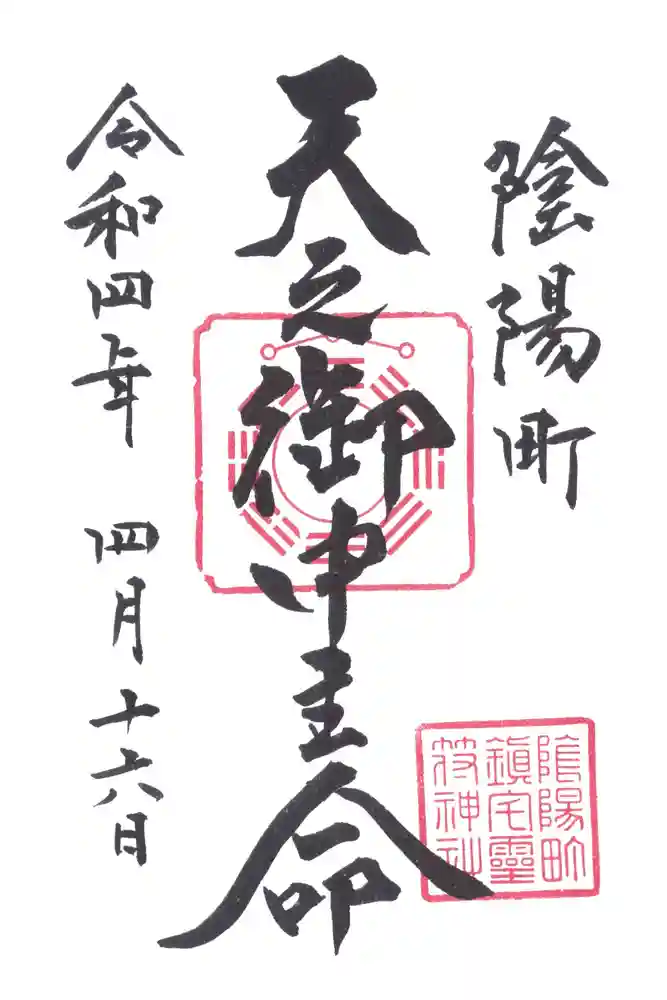 陰陽町
天之御中主命
令和四年 四月十六日
陰陽町
鎮宅靈
符神社